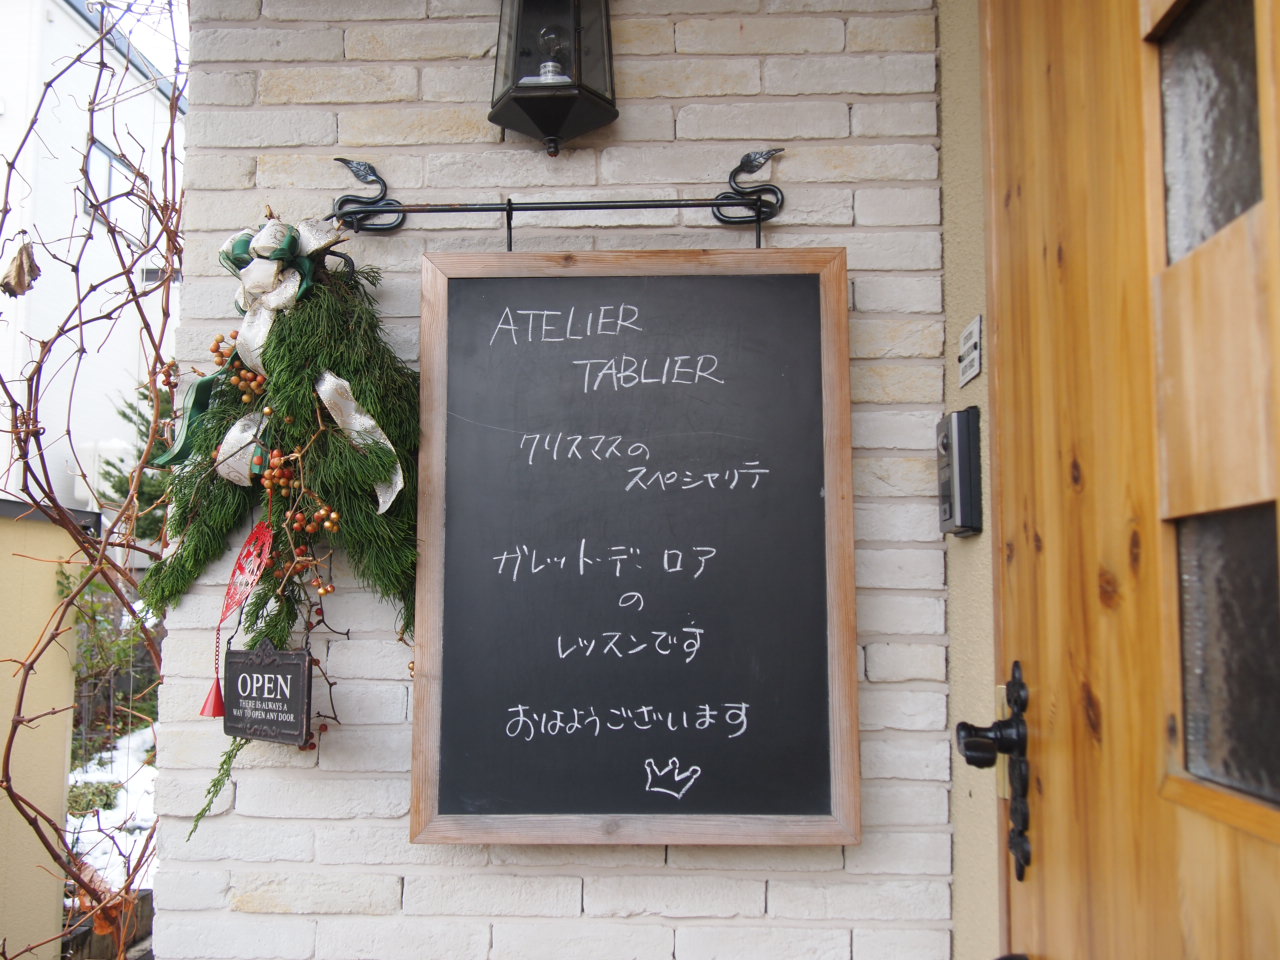 ATELIER
TABLIER
クリスマスの
スペシャリテ
ガレット・デ・ロア
の
レッスンです
おはようございます
OPEN
THERE IS ALWAYS A
WAY TO OPEN ANY DOOR.